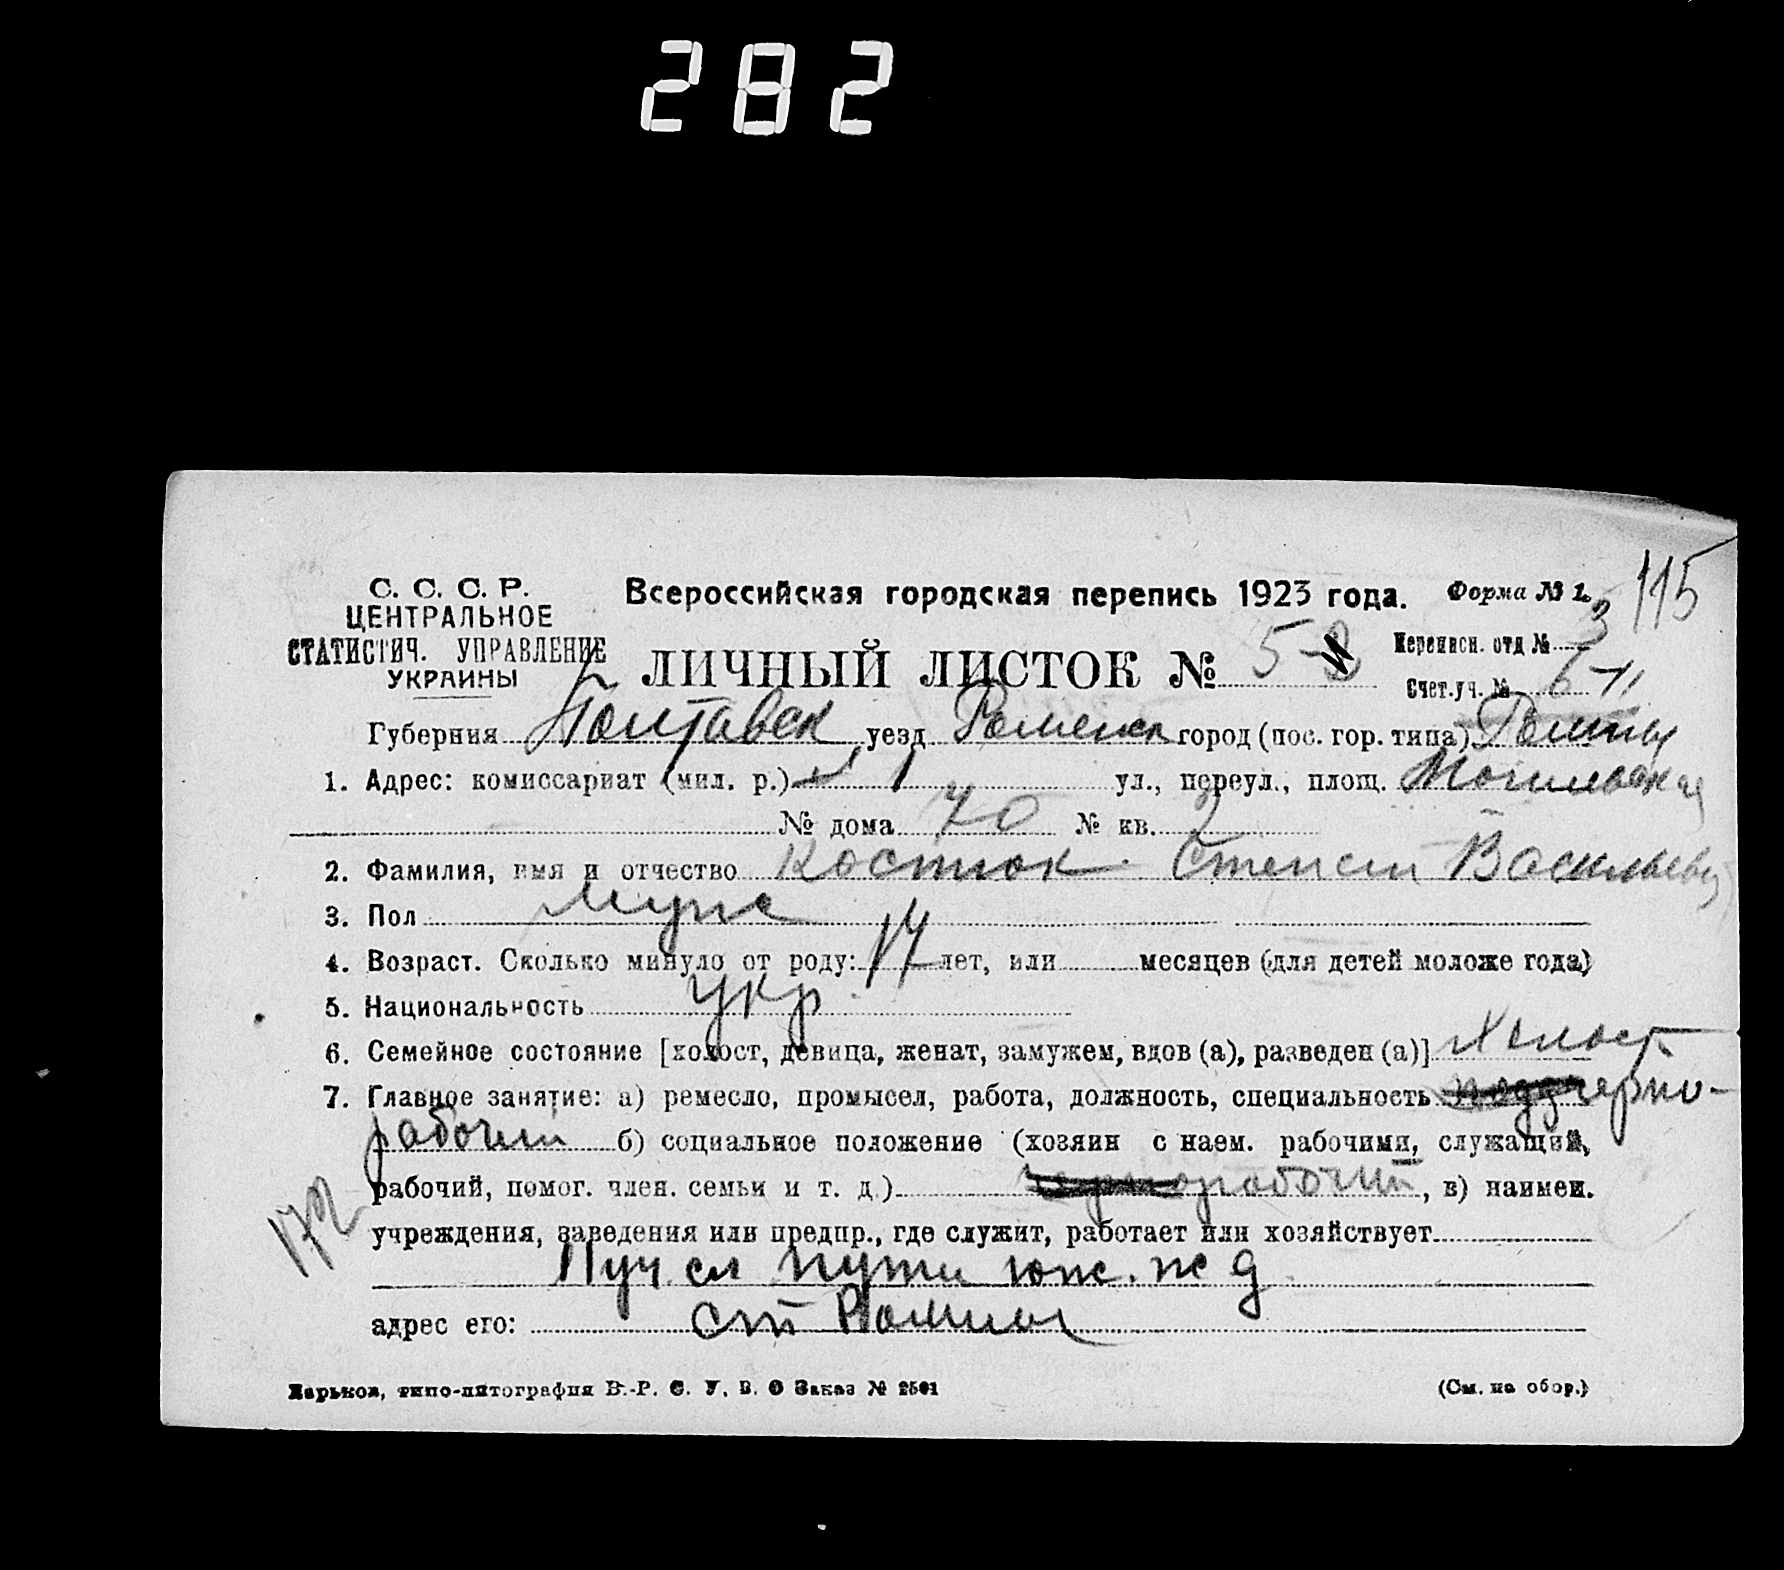 282
С. С. С. Р.
ЦЕНТРАЛЬНОЕ
СТАТИСТИЧ. УПРАВЛЕНИЕ
УКРАИНЫ
Всероссийская городская перепись 1923 года.
Форма № 1.
115
ЛИЧНЫЙ ЛИСТОК № 5
Переписн. отд № 3
Счет.уч. № 6-II
Губерния Полтавск уезд Роменск город (пос. гор. типа) Ромны
1. Адрес: комиссариат (мил. р.) 1 ул., переул., площ.
№ дома 70 № кв. 2
2. Фамилия, имя и отчество Костюк Степан Васильевич
3. Пол Муж
4. Возраст. Сколько минуло от роду: 17 лет, или месяцев (для детей моложе года)
5. Национальность Укр
6. Семейное состояние [холост, девица, женат, замужем, вдов (а), разведен (а)] Холост
7. Главное занятие: а) ремесло, промысел, работа, должность, специальность черно-
рабочий б) социальное положение (хозяин с наем. рабочими, служащий,
рабочий, помог. член. семьи и т. д.) рабочий, в) наимен.
172
учреждения, заведения или предпр., где служит, работает или хозяйствует
Пуч сл пути юж. ж д
адрес его: ст Ромны
Харьков, типо-литография В.-Р. С. У. В. О Заказ № 2501
(См. на обор.)